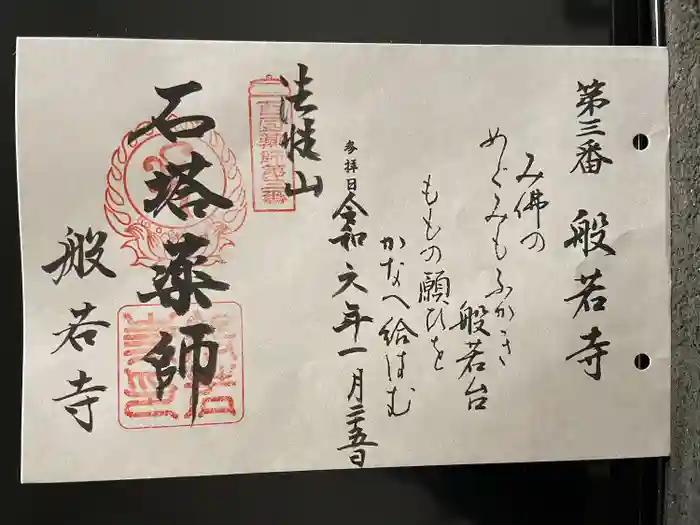 第三番 般若寺
み佛の
めぐみもふかき
般若台
もゝの願ひを
かなへ給はむ
参拝日 令和六年一月二十五日
法性山
西国薬師第三番
石塔薬師
般若寺